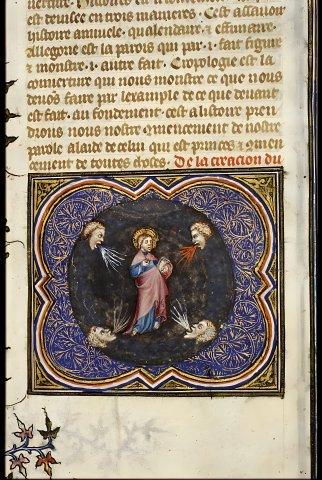 est deuisee en trois manieres. Cest assauoir
histoire annuele. qualendaire. et effimaire.
allegorie est la parois qui par .i. fait figure
et monstre .i. autre fait. Tropologie est la
couuerture qui nous monstre ce que nous
deuos faire par lexample de ce que deuant
est fait. au fondement. cest alistoire pren
drons nous nostre cõmencement de nostre
parole alaide de celui qui est princes et cõmen
cement de toutes choses. De la creacion du